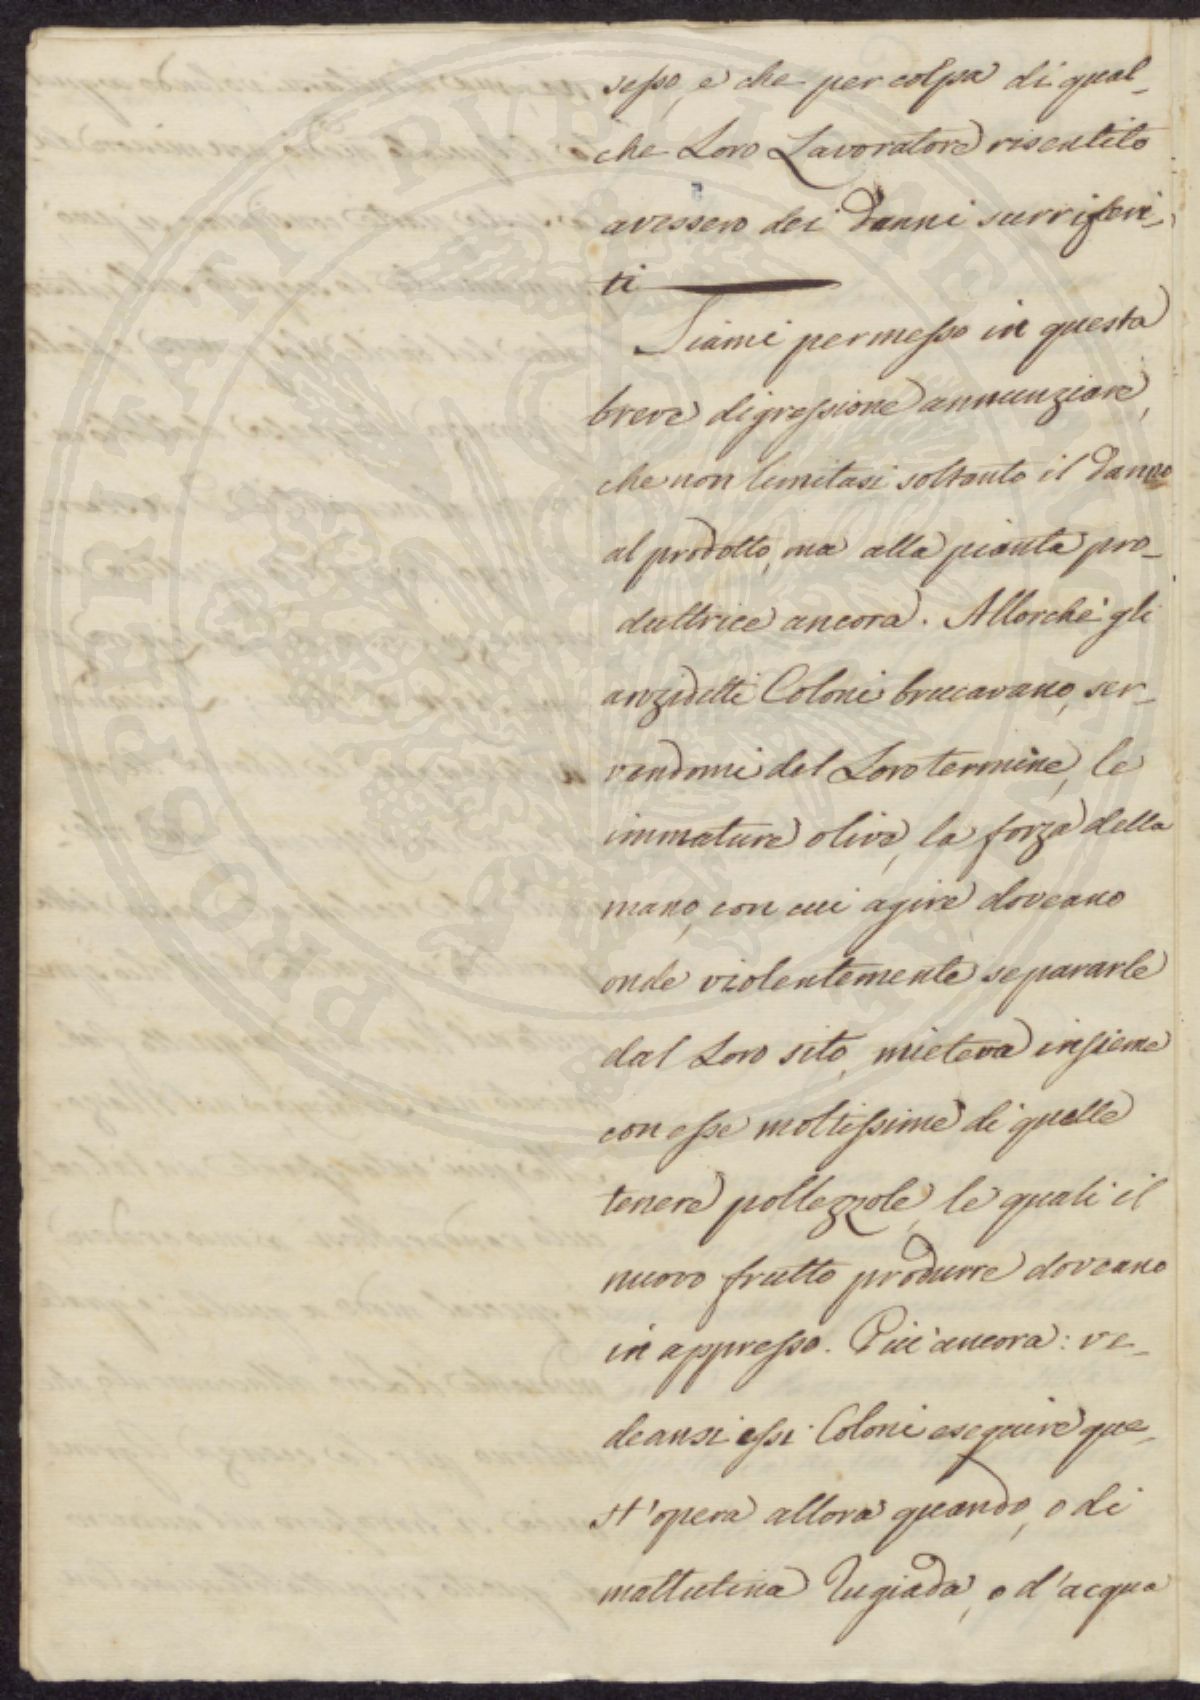 sesso, e che per colpa di qual-
che Loro Lavoratore risentito
avessero dei danni surriferi-
ti
Siami permesso in questa
breve digressione annunziare,
che non limitasi soltanto il danno
al prodotto, ma alla pianta pro-
duttrice ancora. Allorchè gli
anzidetti Coloni brucavano, ser-
vendomi del Loro termine, le
immature olive, la forza della
mano, con cui agire doveano
onde violentemente separarle
dal Loro sito, mieteva insieme
con esse moltissime di quelle
tenere pollezzole, le quali il
nuovo frutto produrre doveano
in appresso. Più ancora: ve-
deansi essi Coloni eseguire que-
st'opera allora quando, o di
mattutina rugiada, o d'acqua
PROSPERITATI PVBLICAE AVGENDAE